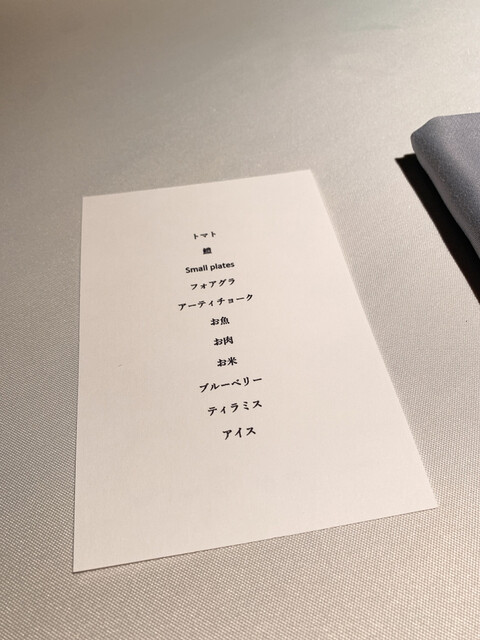 トマト
鱧
Small plates
フォアグラ
アーティチョーク
お魚
お肉
お米
ブルーベリー
ティラミス
アイス